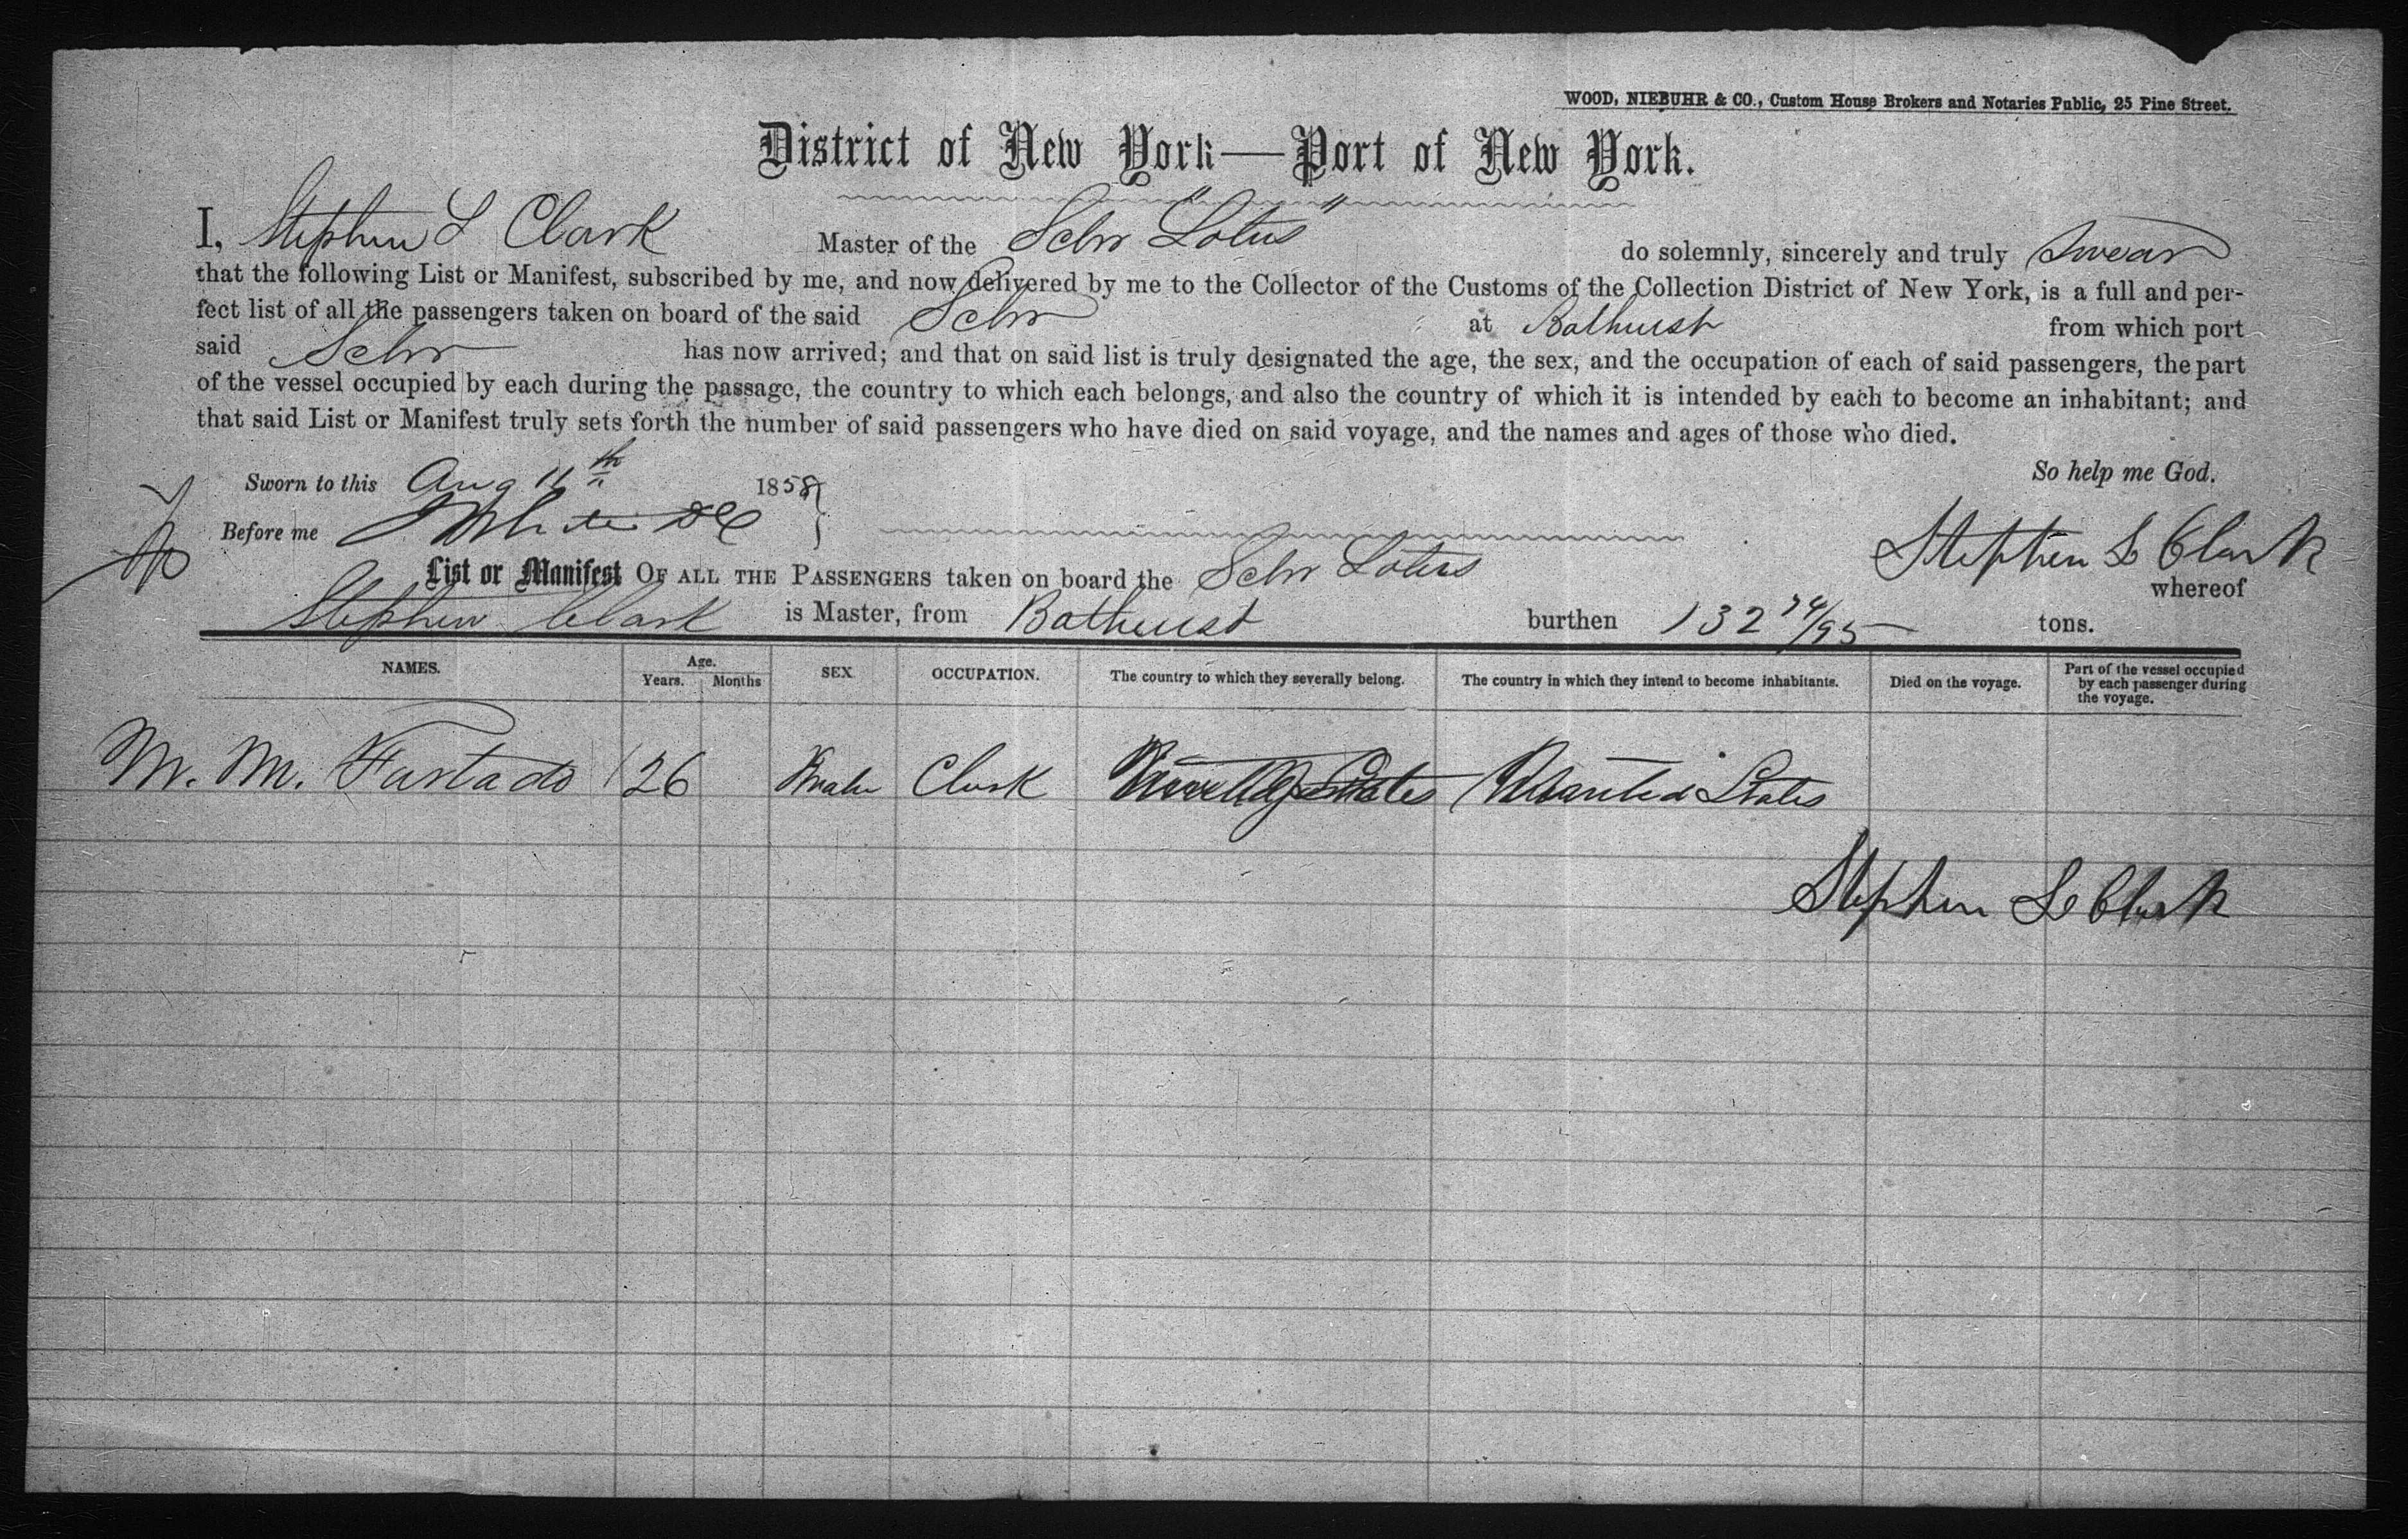 WOOD, NIEBUHR & CO., Custom House Brokers and Notaries Public, 25 Pine Street.
District of New York—Port of New York.
I, Stephen L Clark Master of the Schr "Lotus" do solemnly, sincerely and truly swear
that the following List or Manifest, subscribed by me, and now delivered by me to the Collector of the Customs of the Collection District of New York, is a full and per-
fect list of all the passengers taken on board of the said Schr at Bathurst from which port
said Schr has now arrived; and that on said list is truly designated the age, the sex, and the occupation of each of said passengers, the part
of the vessel occupied by each during the passage, the country to which each belongs, and also the country of which it is intended by each to become an inhabitant; and
that said List or Manifest truly sets forth the number of said passengers who have died on said voyage, and the names and ages of those who died.
So help me God.
Sworn to this Aug 11th 1858
Before me White
Stephen L Clark
List or Manifest OF ALL THE PASSENGERS taken on board the Schr Lotus whereof
Stephen Clark is Master, from Bathurst burthen 132 74/95 tons.
NAMES. Age. Years. Months SEX OCCUPATION. The country to which they severally belong. The country in which they intend to become inhabitants. Died on the voyage. Part of the vessel occupied by each passenger during the voyage.
M. M. Furtado 26 Male Clerk States United States
Stephen L Clark